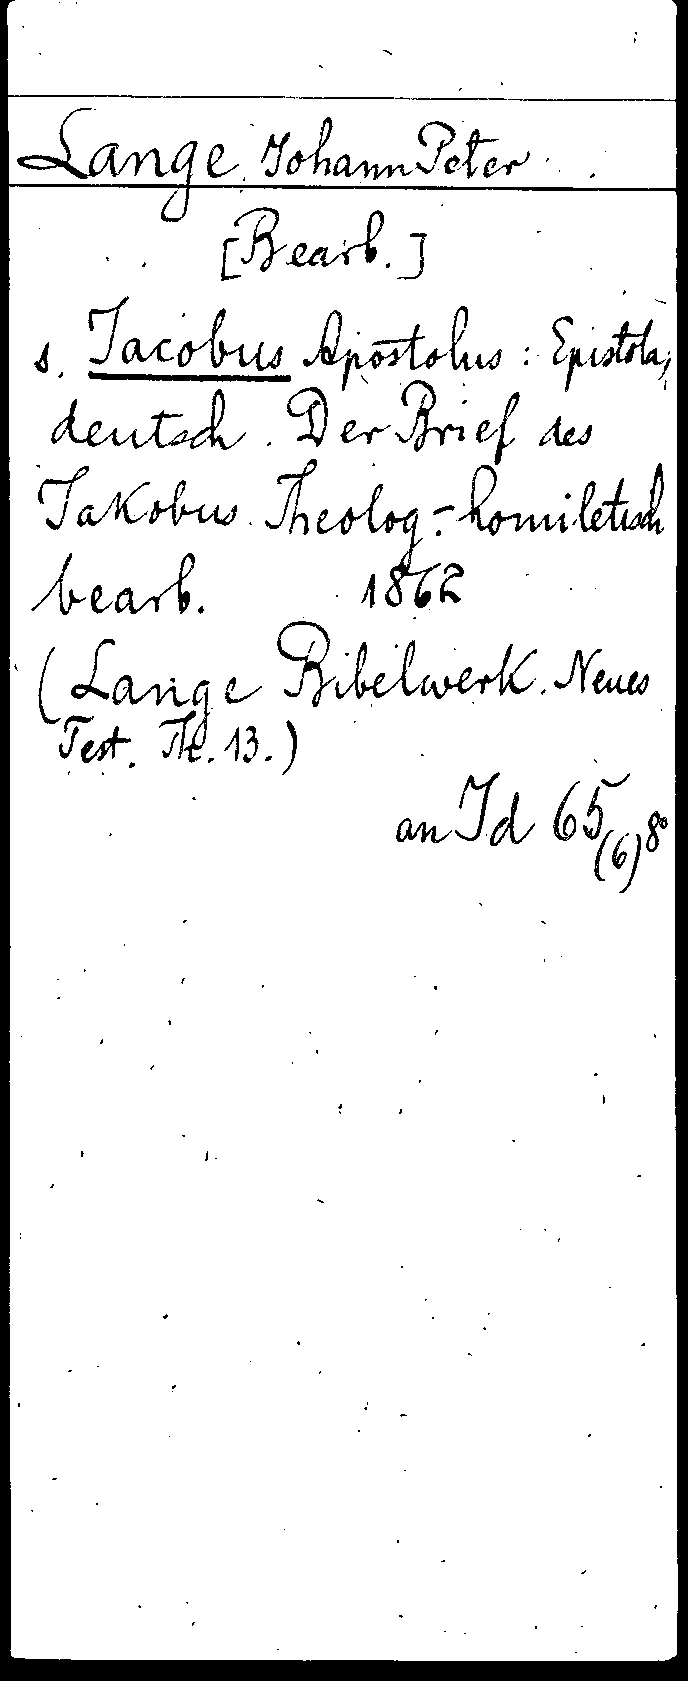 Lange, Johann Peter
[Bearb.]
s. Jacobus Apostolus: Epistola,
deutsch. Der Brief des
Jakobus. Theolog.-homiletisch
bearb. 1862
(Lange Bibelwerk. Neues
Test. Th. 13.)
an Id 65(6) 8°